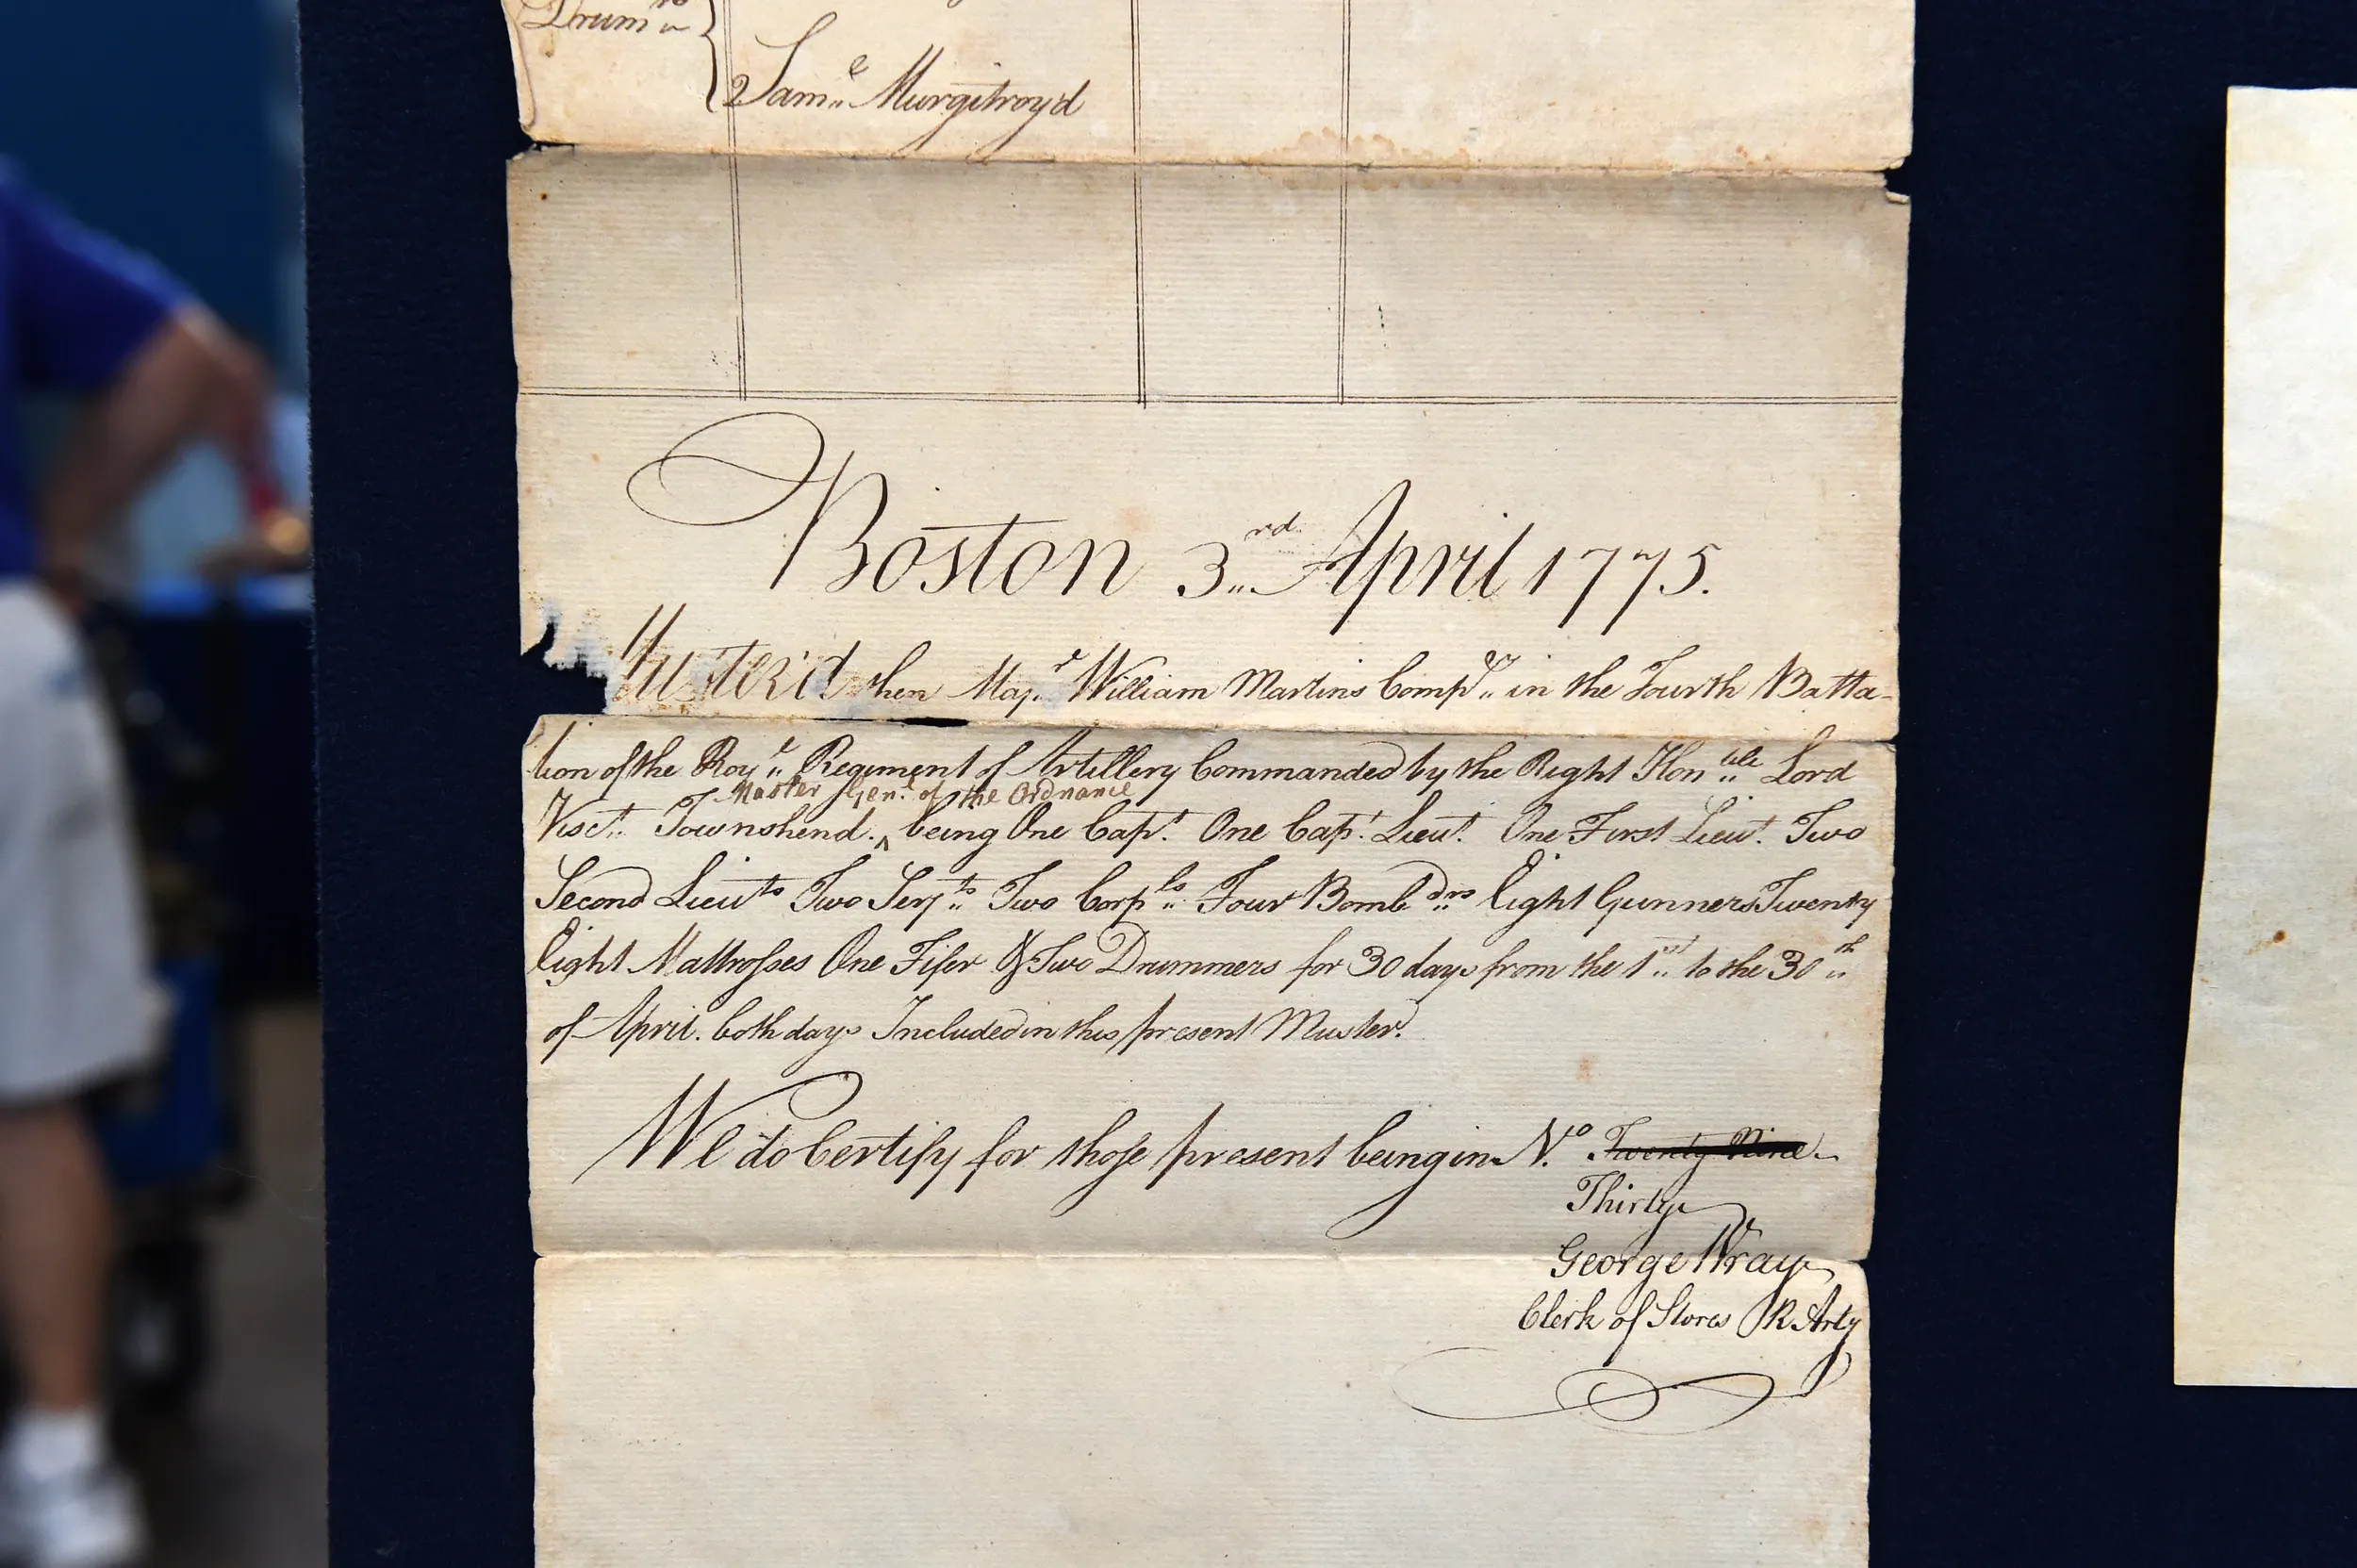 Drum.rs
2 Sam.e Murgitroyd
Boston 3.rd April 1775.
Muster'd then Maj.r William Martins Comp.y in the Fourth Batta-
lion of the Roy.l Regiment of Artillery Commanded by the Right Hon.ble Lord
Master Gen.l of the Ordnance
Visc.t Townshend. ^ being One Cap.t One Cap.t Lieut. One First Lieut. Two
Second Lieu.ts Two Serj.ts Two Corp.ls Four Bomb.drs Eight Gunners Twenty
Eight Mattrosses One Fifer & Two Drummers for 30 days from the 1.st to the 30.th
of April. both days Included in this present Muster.
We do Certify for those present being in N.o Twenty Nine
Thirty
George Wray
Clerk of Stores R Arty